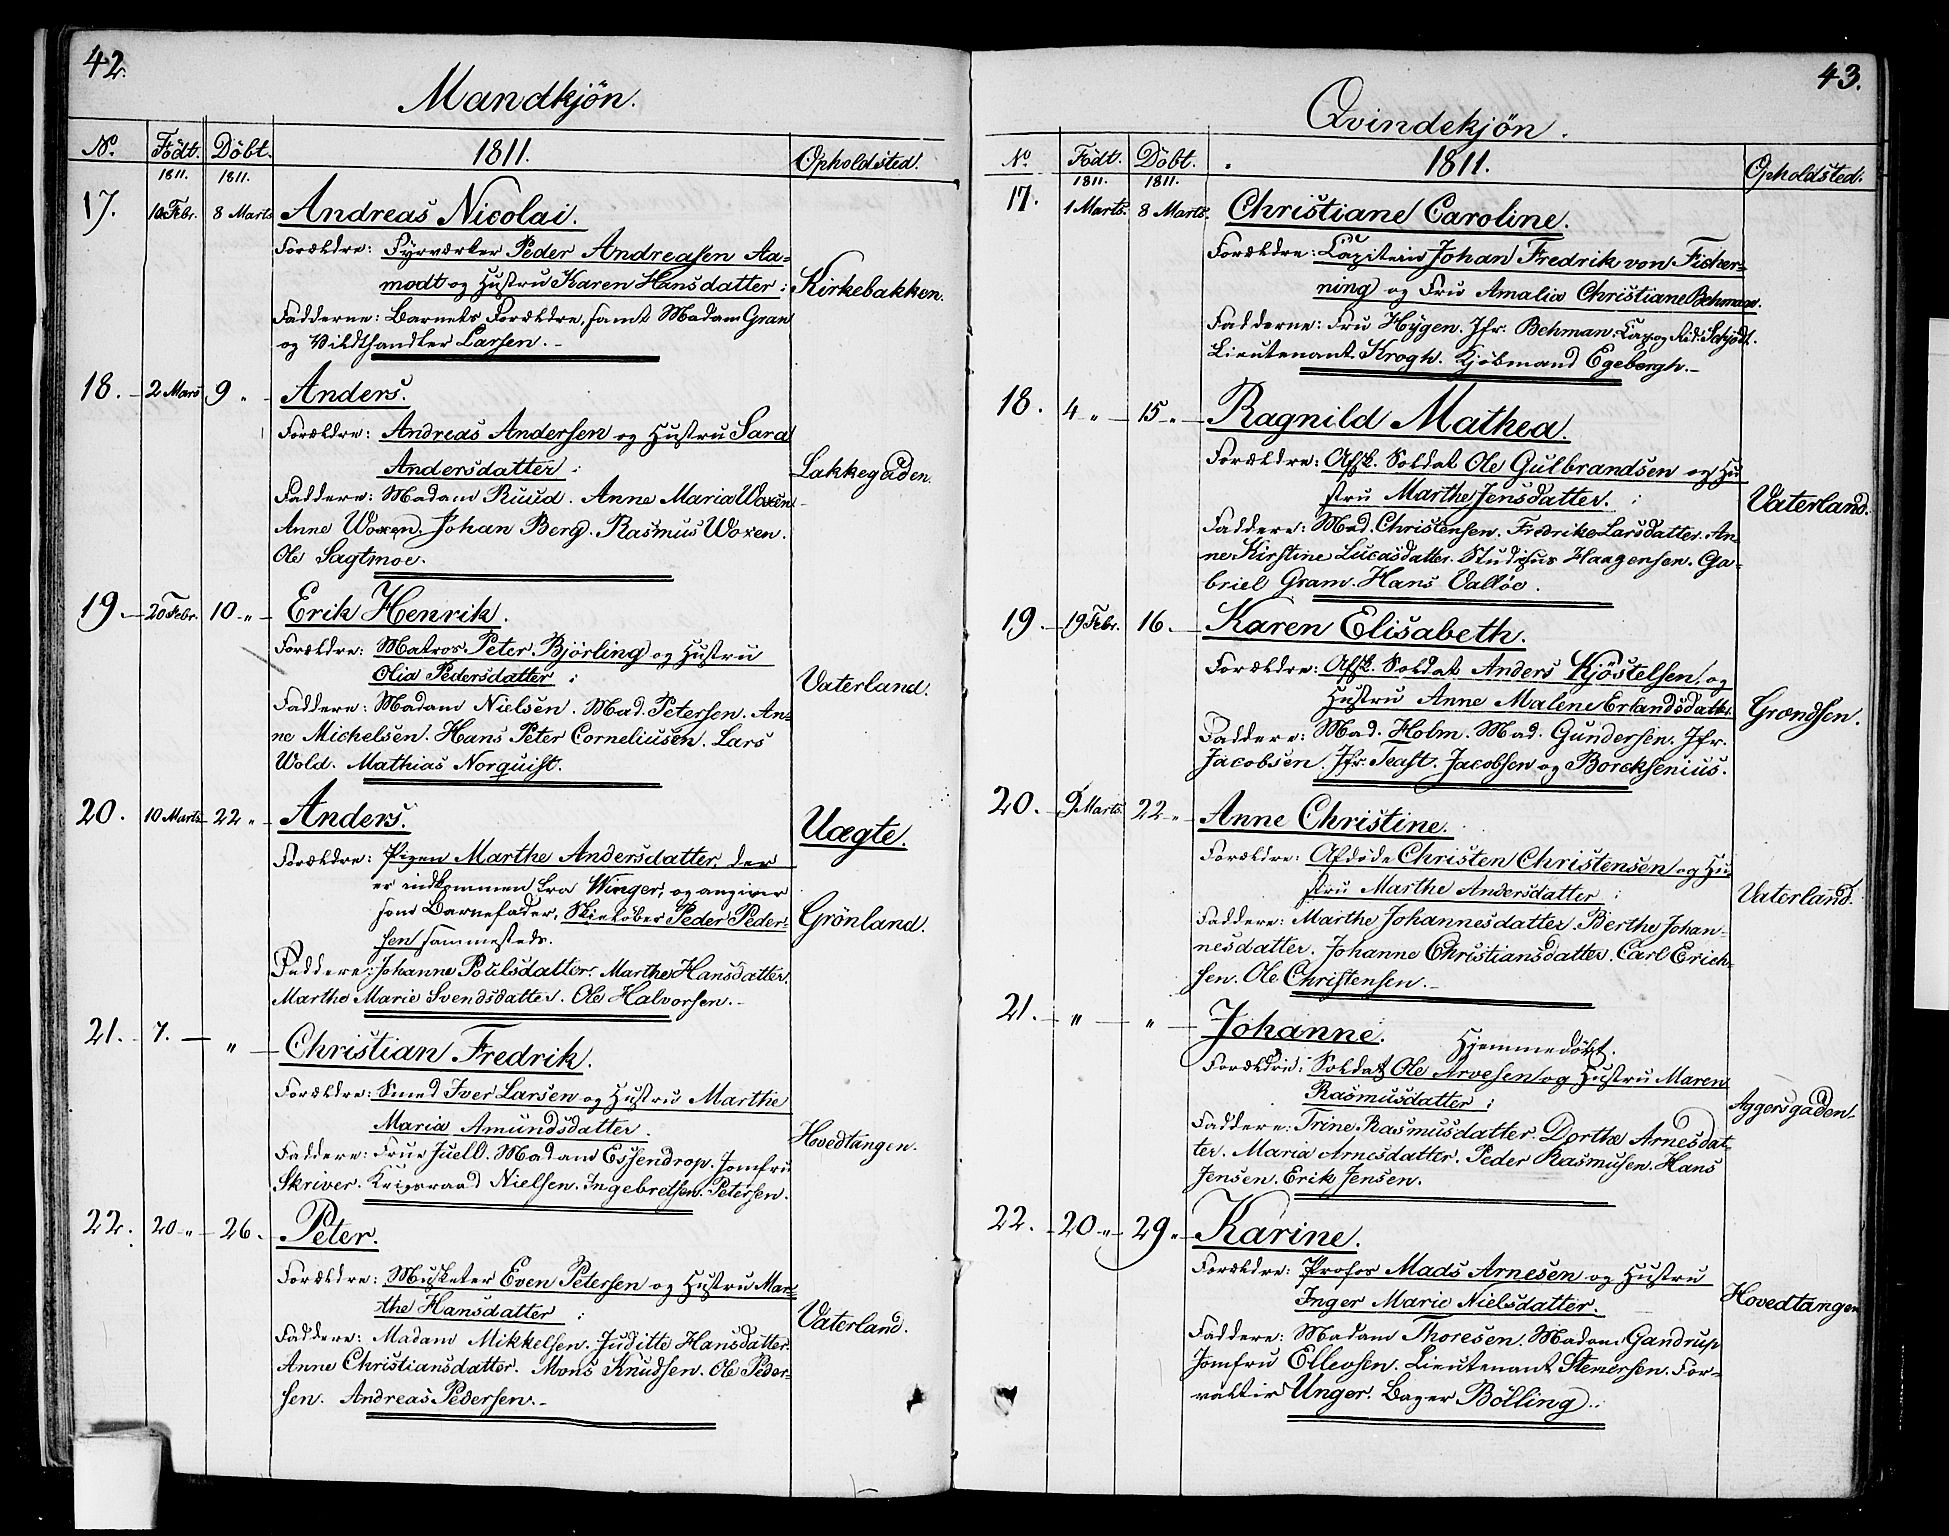 42.
Mandkjön.
No. Födt. Döbt. 1811. Opholdsted.
1811. 1811.
17. 10 Febr. 8 Marts Andreas Nicolai.
Forældre: Fyrværker Peder Andreasen Aa-
modt og Hustru Karen Hansdatter: Kirkebakken.
Fadderne: Barnets Forældre, samt Madam Gran
og Vildthandler Larsen.
18. 2 Mars 9 " Anders.
Forældre: Andreas Andersen og Hustru Sara
Andersdatter: Lakkegaden.
Faddere: Madam Ruud. Anne Maria Woxen.
Anne Woxen. Johan Berg. Rasmus Woxen.
Ole Sagtmoe.
19. 20 Febr. 10 " Erik Henrik.
Forældre: Matros Peter Björling og Hustru
Olia Pedersdatter: Vaterland.
Faddere: Madam Nielsen. Mad. Petersen. An-
ne Michelsen. Hans Peter Corneliusen. Lars
Wold. Mathias Norquist.
20. 10 Marts 22 " Anders. Uægte.
Forældre: Pigen Marthe Andersdatter, der
er indkommen fra Winger, og angiver
som Barnefader, Skieløber Peder Peder- Grönland.
sen sammesteds.
Faddere: Johanne Poulsdatter. Marthe Hansdatter.
Marthe Marie Svendsdatter. Ole Halvorsen.
21. 7. " Christian Fredrik.
Forældre: Smed Iver Larsen og Hustru Marthe
Maria Amundsdatter. Hovedtangen.
Faddere: Frue Juell. Madam Essendrop. Jomfru
Skriver. Krigsraad Nielsen. Ingebretsen. Petersen.
22. 20 " 26. Peter.
Forældre: Musketer Even Petersen og Hustru Mar-
the Hansdatter: Vaterland.
Faddere: Madam Mikkelsen. Juditte Hansdatter.
Anne Christiansdatter. Mons Knudsen. Ole Peder-
sen. Andreas Pedersen.
43.
Qvindekjön.
No. Födt. Döbt. 1811. Opholdsted.
1811. 1811.
17. 1 Marts. 8 Marts. Christiane Caroline.
Forældre: Capitein Johan Fredrik von Ficher-
ning og Fru Amalia Christiane Behmann.
Fadderne: Fru Heÿgen. Jfr. Behman. Cap. og Rid: Schjödt.
Lieutenant Krogh. Kjöbmand Egebergh.
18. 4 " 15 " Ragnild Mathea.
Forældre: Afsk. Soldat Ole Gulbrandsen og Hu
stru Marthe Jensdatter. Vaterland.
Faddere: Mad. Christensen. Fredrike Larsdatter. An-
ne Kirstine Lucasdatter. Studiosus Haagensen. Ga-
briel Gram. Hans Valløe.
19. 19 Febr. 16. Karen Elisabeth.
Forældre: Afsk. Soldat Anders Kjöstelsen, og
Hustru Anne Malene Erlandsdatter. Grændsen.
Faddere: Mad. Holm. Mad. Gundersen. Jfr.
Jacobsen. Jfr. Teast. Jacobsen og Borcksenius.
20. 9 Marts. 22 " Anne Christine.
Forældre: Afdøde Christen Christensen og Hu
stru Marthe Andersdatter: Vaterland.
Faddere: Marthe Johannesdatter. Berthe Johan-
nesdatter. Johanne Christiansdatter. Carl Erich-
sen. Ole Christensen.
21. " " Johanne. Hjemmedöbt.
Forældre: Soldat Ole Arvesen og Hustru Maren
Rasmusdatter: Aggersgaden.
Faddere: Trine Rasmusdatter. Dorthe Arnesdat-
ter. Maria Arnesdatter. Peder Rasmusen. Hans
Jensen. Erik Jensen.
22. 20 " 29 " Karine.
Forældre: Profos Mads Arnesen og Hustru
Inger Marie Nielsdatter. Hovedtangen
Faddere: Madam Thoresen. Madam Gandrup
Jomfru Ellevsen. Lieutenant Stenersen. For-
valtir Unger. Bager Bölling.